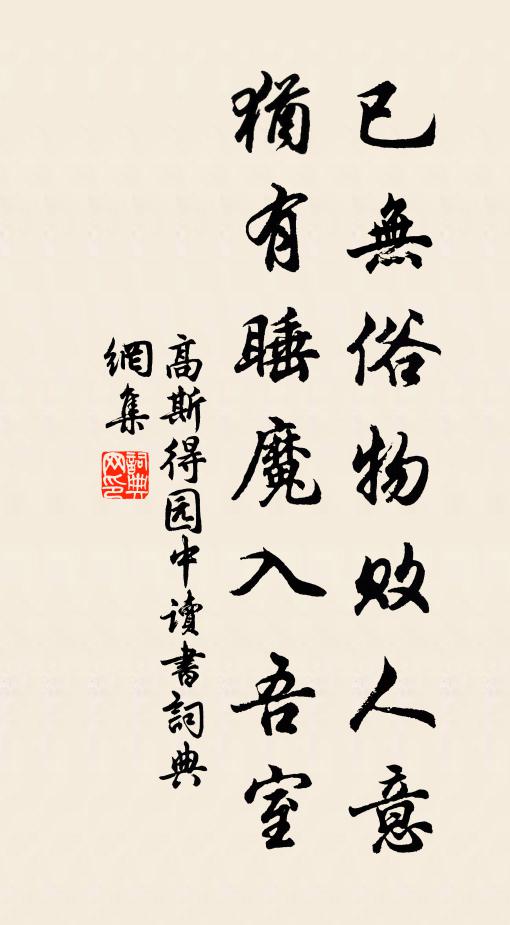 已無俗物敗人意
猶有睡魔入吾室
高斯得园中讀書詞典
網集
詞典
网印